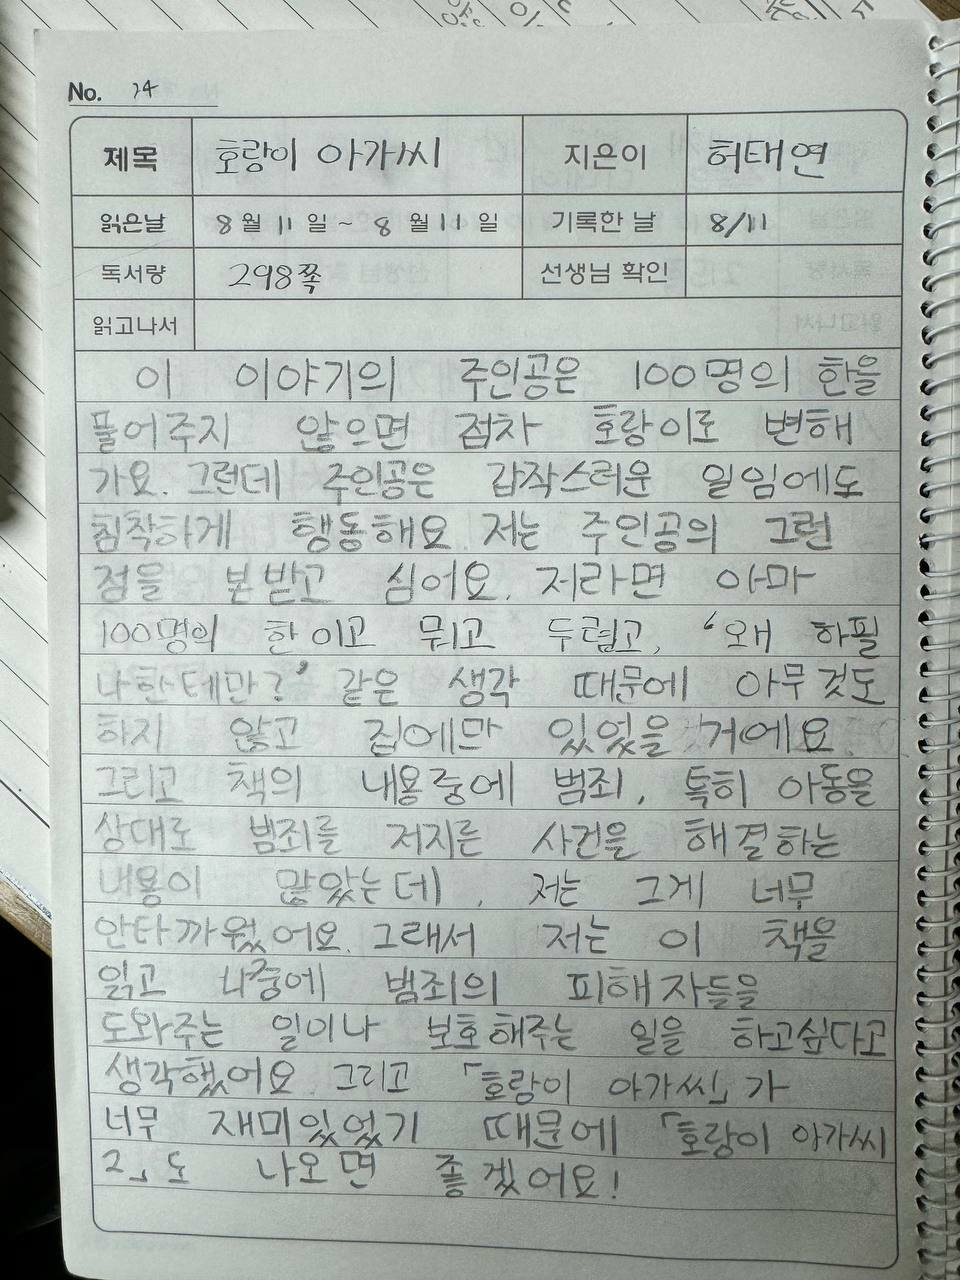 No. 24
제목 호랑이 아가씨 지은이 허태연
읽은날 8월 11일 ~ 8월 11일 기록한 날 8/11
독서량 298쪽 선생님 확인
읽고나서
이 이야기의 주인공은 100명의 한을
풀어주지 않으면 점차 호랑이로 변해
가요. 그런데 주인공은 갑작스러운 일임에도
침착하게 행동해요. 저는 주인공의 그런
점을 본받고 싶어요. 저라면 아마
100명의 한이고 뭐고 두렵고, ‘왜 하필
나한테만?’ 같은 생각 때문에 아무것도
하지 않고 집에만 있었을 거에요.
그리고 책의 내용중에 범죄, 특히 아동을
상대로 범죄를 저지른 사건을 해결하는
내용이 많았는데, 저는 그게 너무
안타까웠어요. 그래서 저는 이 책을
읽고 나중에 범죄의 피해자들을
도와주는 일이나 보호해주는 일을 하고싶다고
생각했어요. 그리고 「호랑이 아가씨」가
너무 재미있었기 때문에 「호랑이 아가씨
2」도 나오면 좋겠어요!